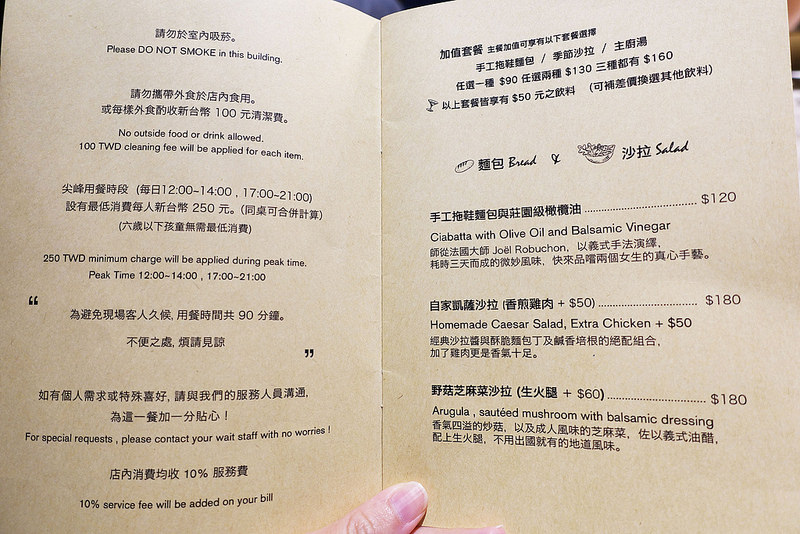 請勿於室內吸菸。
Please DO NOT SMOKE in this building.
請勿攜帶外食於店內食用。
或每樣外食酌收新台幣 100 元清潔費。
No outside food or drink allowed.
100 TWD cleaning fee will be applied for each item.
尖峰用餐時段 (每日12:00~14:00 , 17:00~21:00)
設有最低消費每人新台幣 250 元。(同桌可合併計算)
(六歲以下孩童無需最低消費)
250 TWD minimum charge will be applied during peak time.
Peak Time 12:00~14:00 , 17:00~21:00
“
為避免現場客人久候, 用餐時間共 90 分鐘。
不便之處, 煩請見諒
”
如有個人需求或特殊喜好, 請與我們的服務人員溝通,
為這一餐加一分貼心！
For special requests , please contact your wait staff with no worries !
店內消費均收 10% 服務費
10% service fee will be added on your bill
加值套餐 主餐加值可享有以下套餐選擇
手工拖鞋麵包 / 季節沙拉 / 主廚湯
任選一種 $90 任選兩種 $130 三種都有 $160
以上套餐皆享有 $50 元之飲料 (可補差價換選其他飲料)
麵包 Bread & 沙拉 Salad
手工拖鞋麵包與莊園級橄欖油 ........................ $120
Ciabatta with Olive Oil and Balsamic Vinegar
師從法國大師 Joël Robuchon, 以義式手法演繹,
耗時三天而成的微妙風味, 快來品嚐兩個女生的真心手藝。
自家凱薩沙拉 (香煎雞肉 + $50) ........................ $180
Homemade Caesar Salad, Extra Chicken + $50
經典沙拉醬與酥脆麵包丁及鹹香培根的絕配組合,
加了雞肉更是香氣十足。
野菇芝麻菜沙拉 (生火腿 + $60) ........................ $180
Arugula , sautéed mushroom with balsamic dressing
香氣四溢的炒菇, 以及成人風味的芝麻菜, 佐以義式油醋,
配上生火腿, 不用出國就有的地道風味。